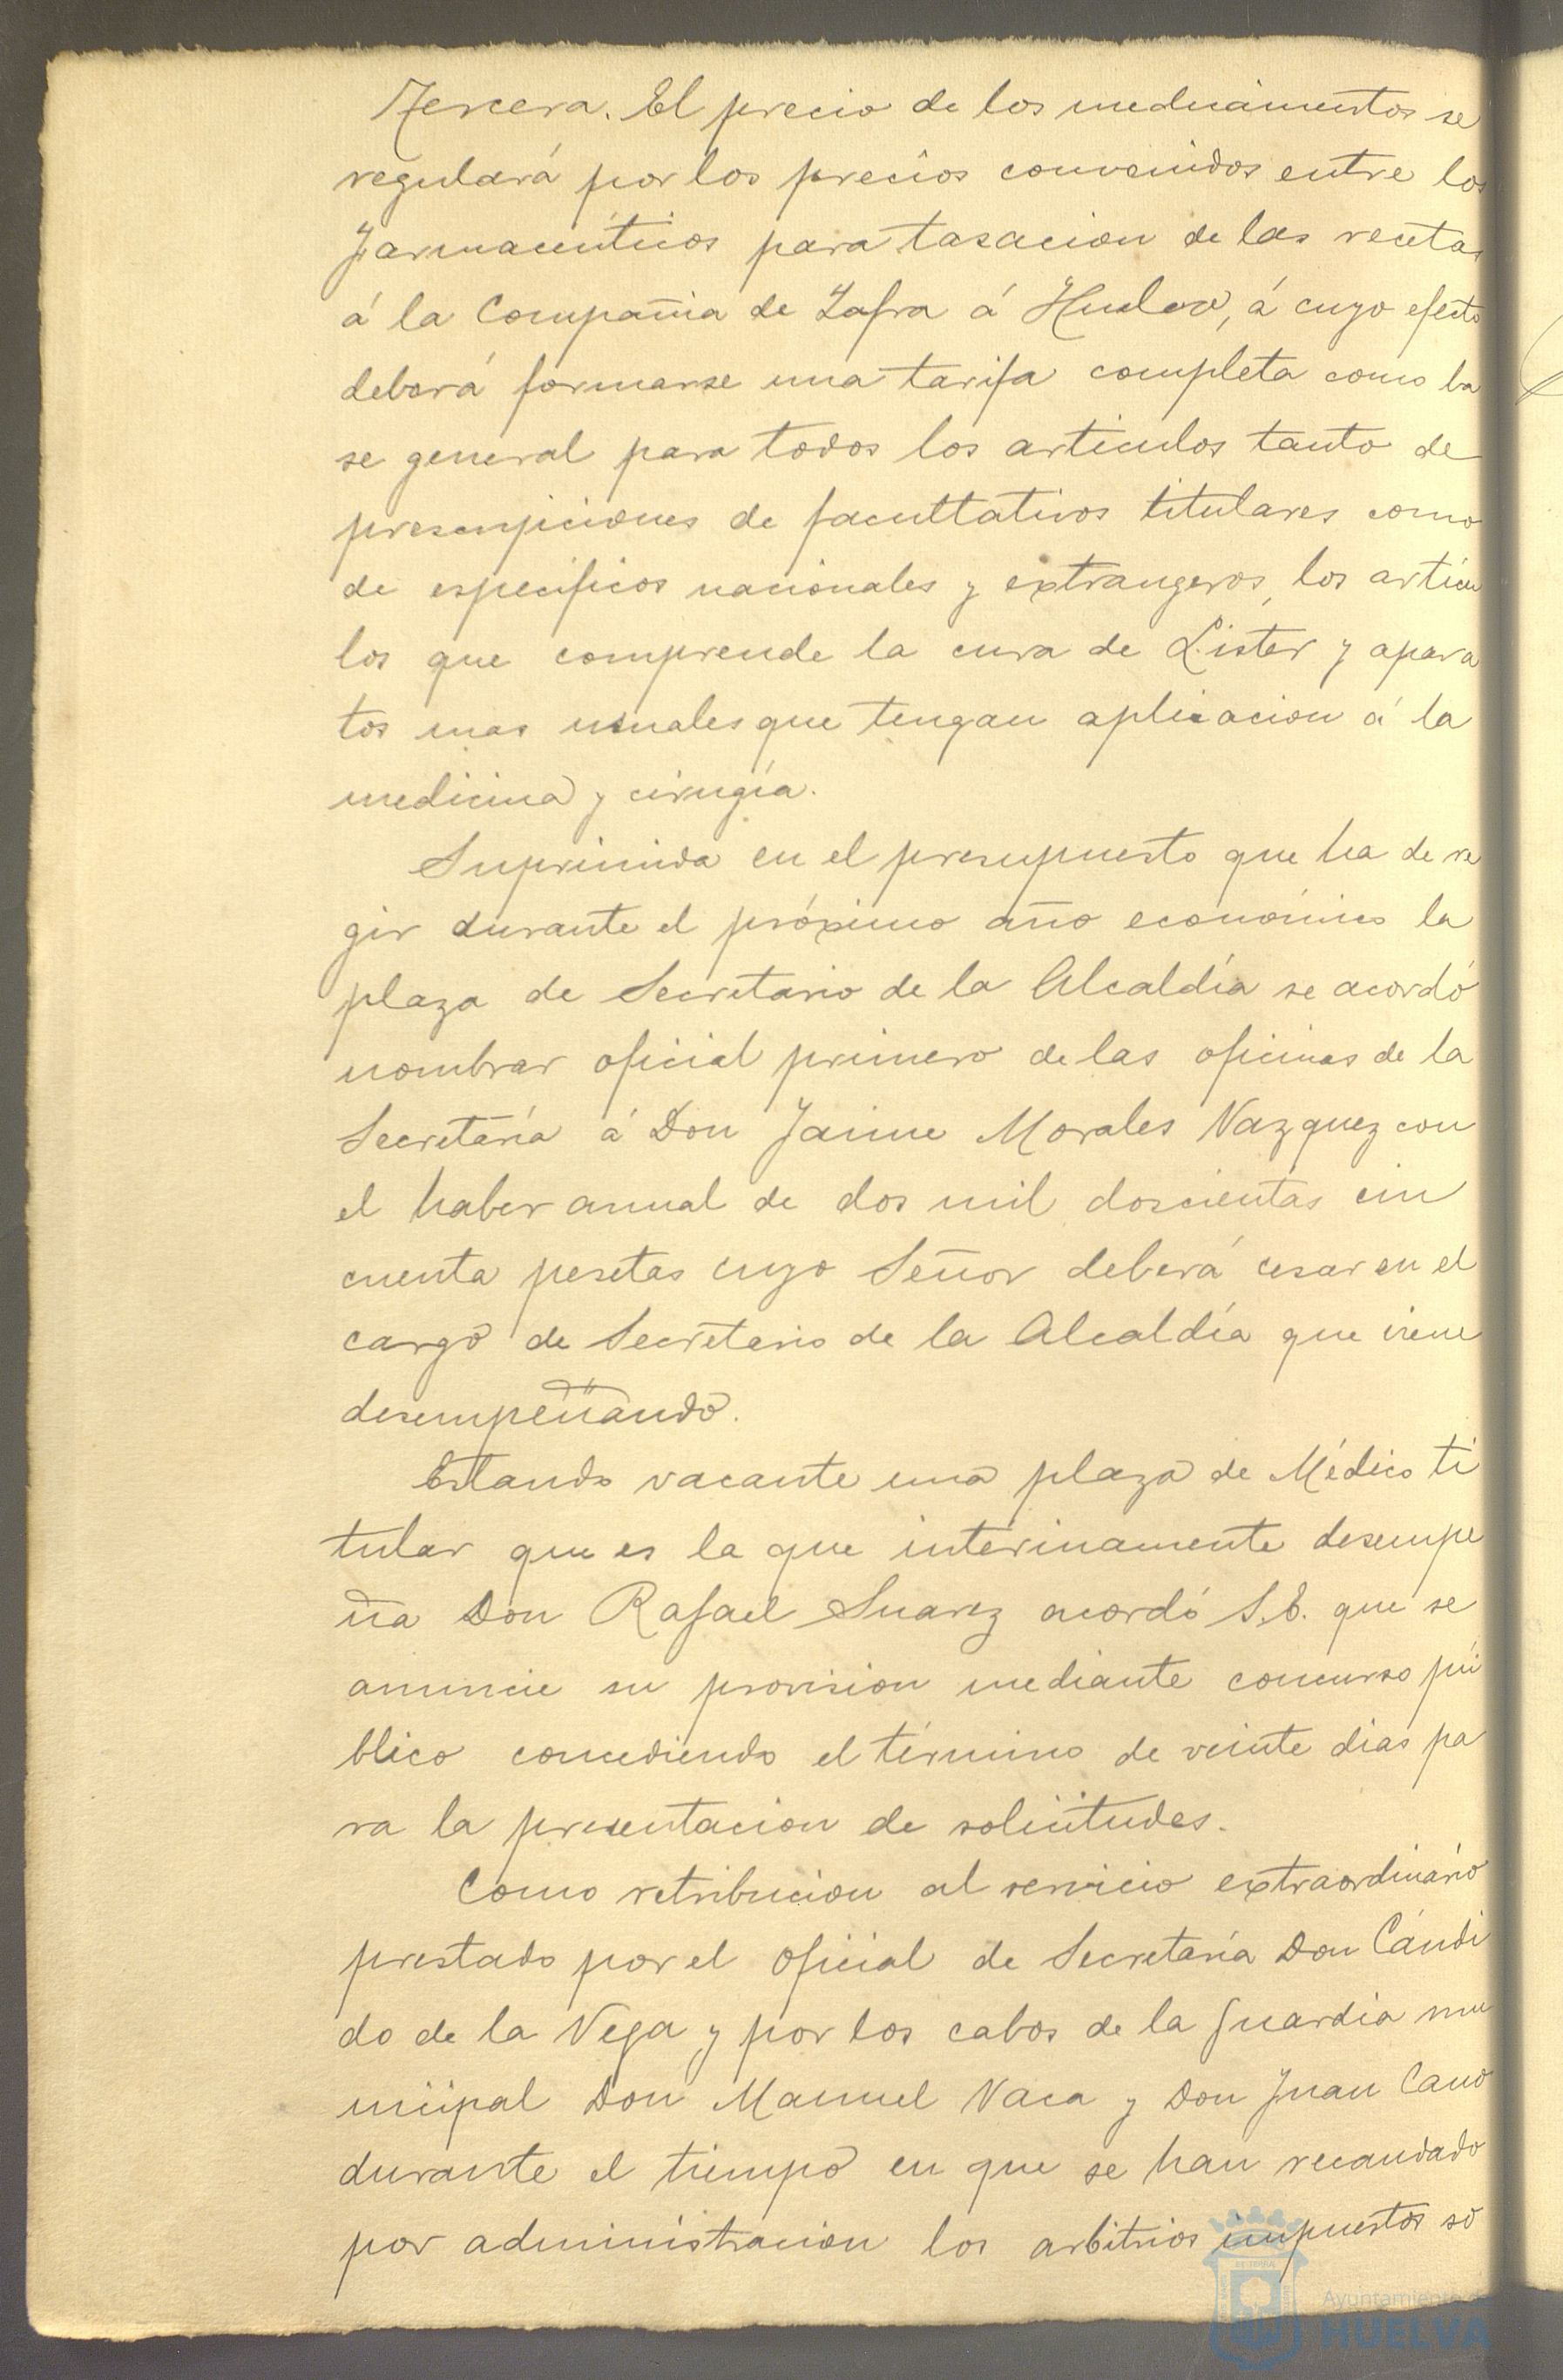 Tercera. El precio de los medicamentos se
regulará por los precios convenidos entre los
farmacéuticos para tasacion de las recetas
á la Compañia de Zafra á Huelva, á cuyo efecto
deberá formarse una tarifa completa como ba
se general para todos los articulos tanto de
prescripciones de facultativos titulares como
de específicos nacionales y extrangeros, los articu
los que comprende la cura de Lister y apara
tos mas usuales que tengan aplicacion á la
medicina y cirugía.
Suprimida en el presupuesto que ha de re
gir durante el próximo año económico la
plaza de Secretario de la Alcaldía se acordó
nombrar oficial primero de las oficinas de la
Secretaría á Don Jaime Morales Vazquez con
el haber anual de dos mil doscientas cin
cuenta pesetas cuyo Señor deberá cesar en el
cargo de Secretario de la Alcaldía que viene
desempeñando.
Estando vacante una plaza de Médico ti
tular que es la que interinamente desempe
ña Don Rafael Suarez acordó S.E. que se
anuncie su provision mediante concurso pú
blico concediendo el término de veinte dias pa
ra la presentacion de solicitudes.
Como retribucion al servicio extraordinario
prestado por el oficial de Secretaría Don Cándi
do de la Vega y por los cabos de la Guardia mu
nicipal Don Manuel Vaca y Don Juan Cano
durante el tiempo en que se han recaudado
por administracion los arbitrios impuestos so
Ayuntamiento de
HUELVA